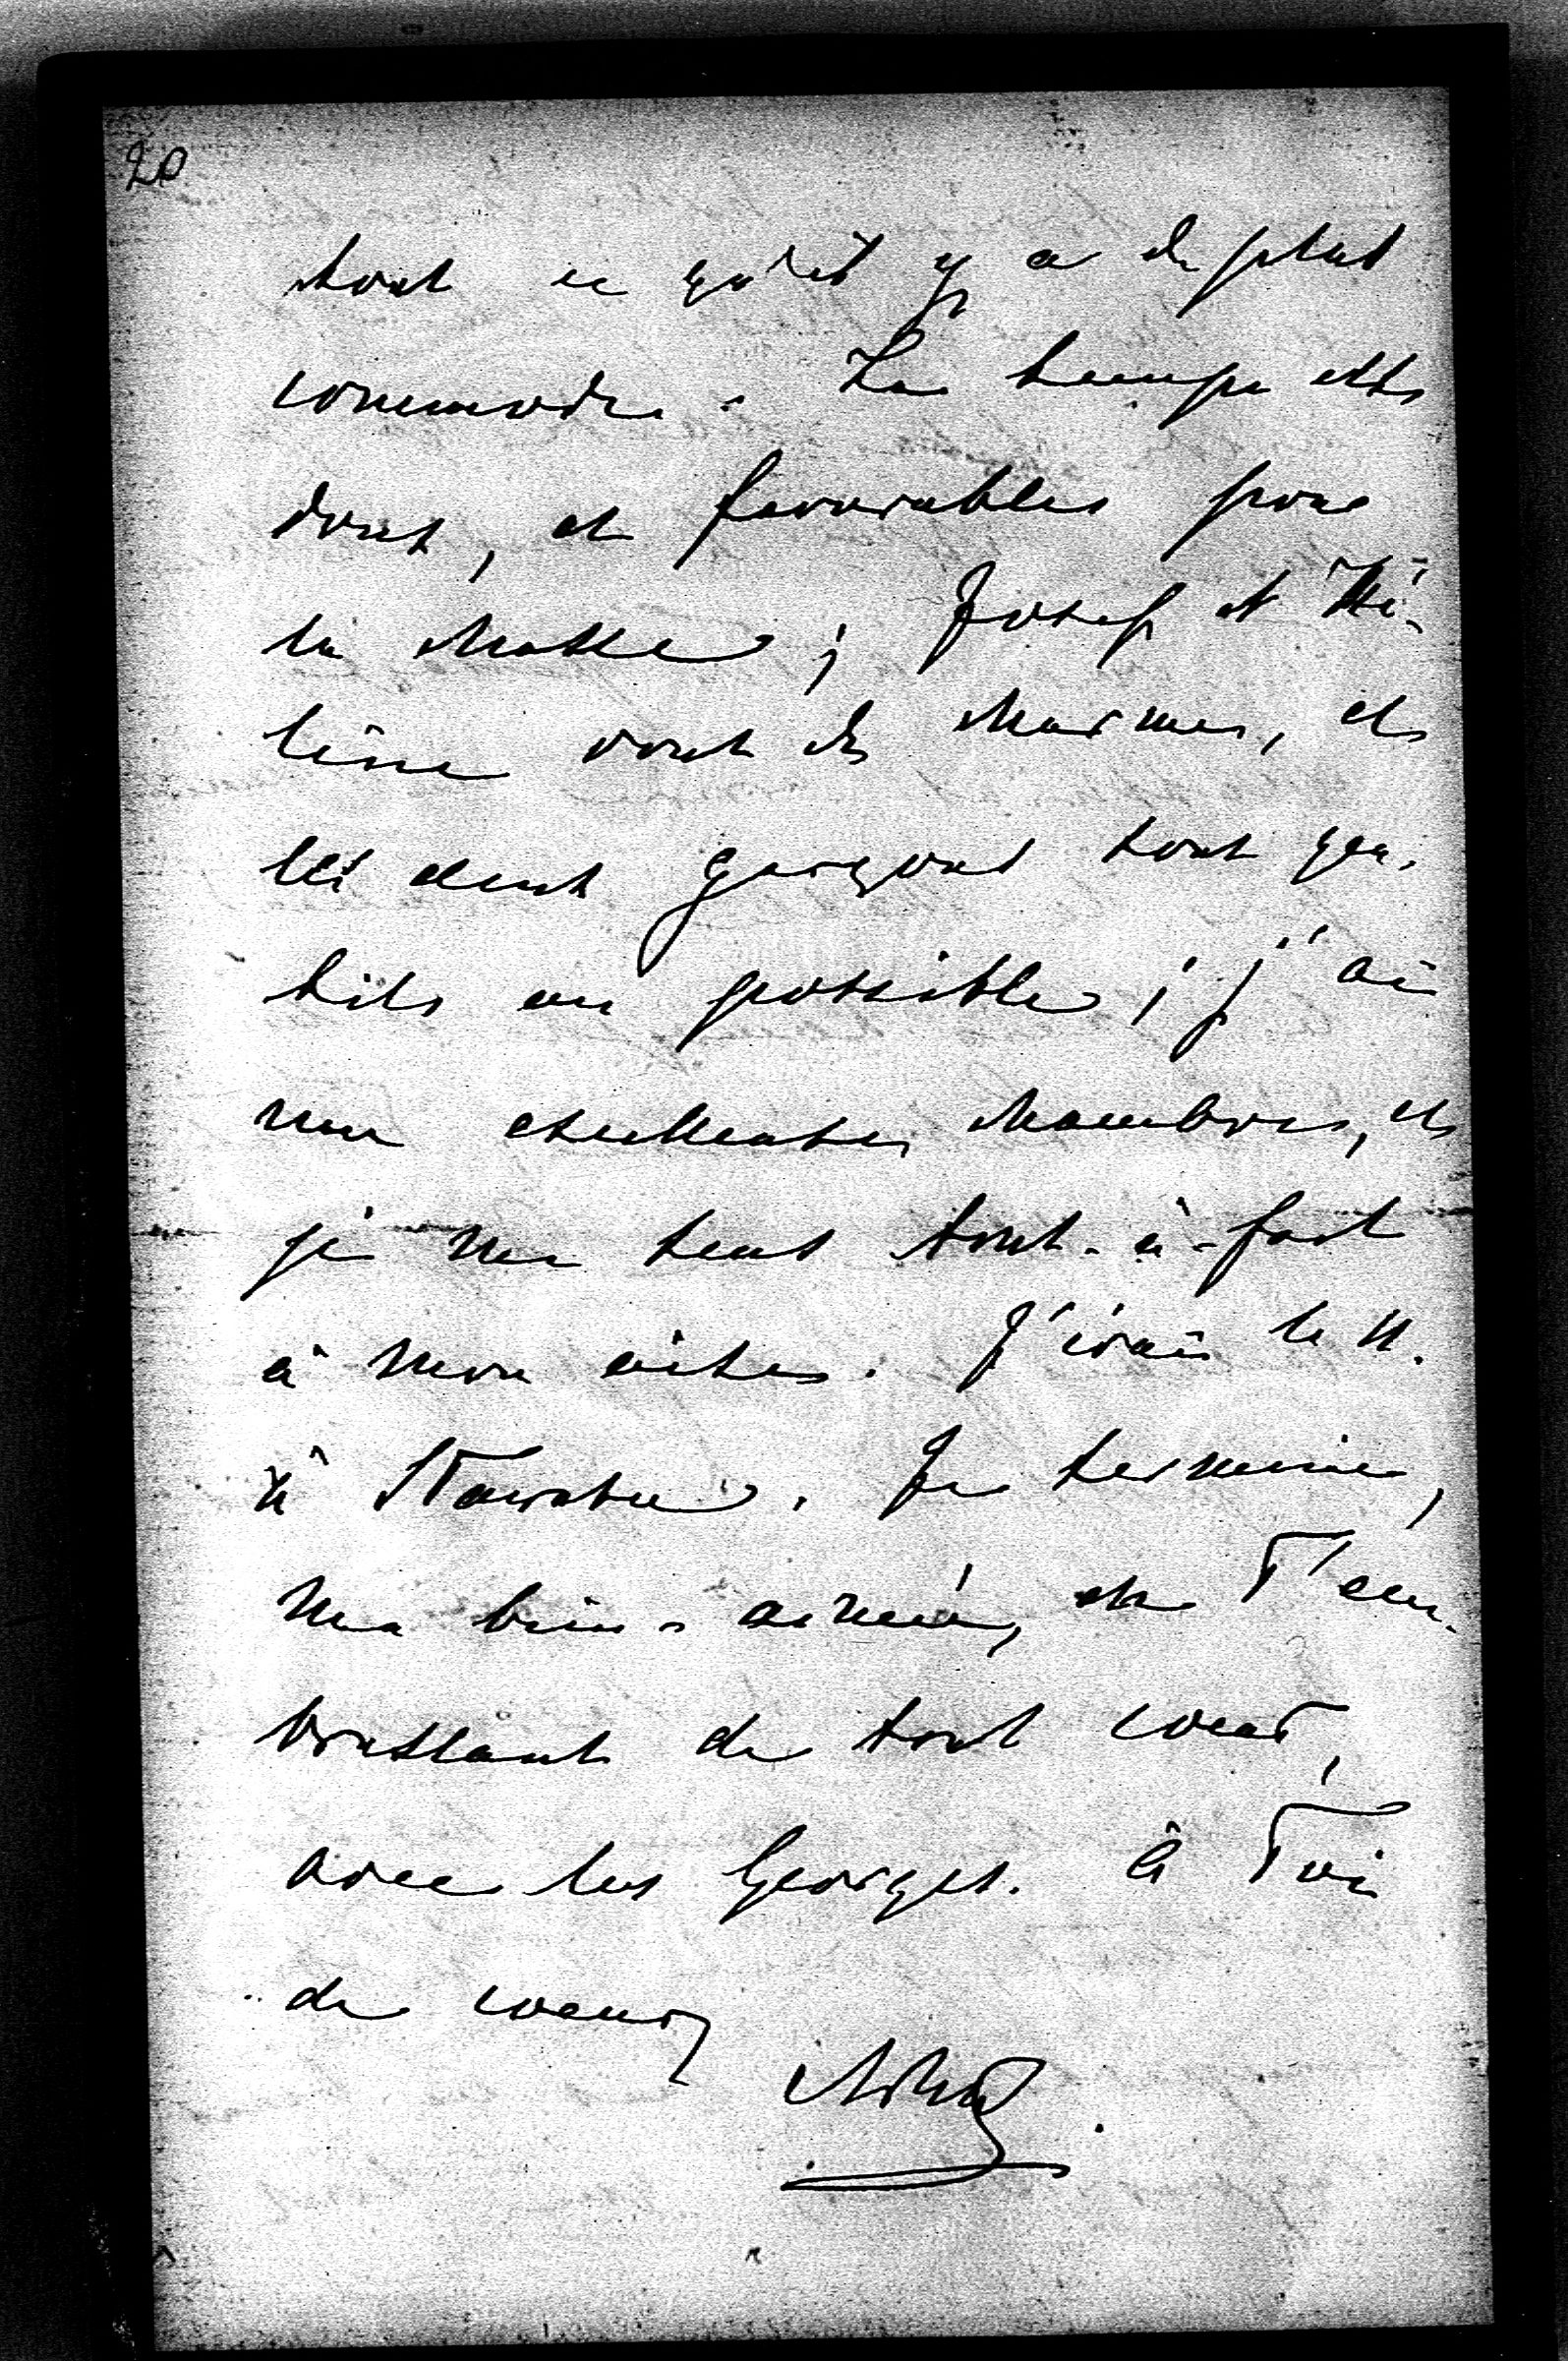 20
tout ce qu'il y a de plus
commode. Le temps est
doux, et favorables pour
la chasse; Josef et Hé-
lène sont de charmes, et
les deux garçons tout gen-
tils au possible; j'ai
une excellente chambre, et
je me sens tout-à-fait
à mon aise. J'irai le 11.
à Je termine,
ma bien-aimée, en T'em-
brassant de tout coeur,
avec les Georges. à Toi
de coeur